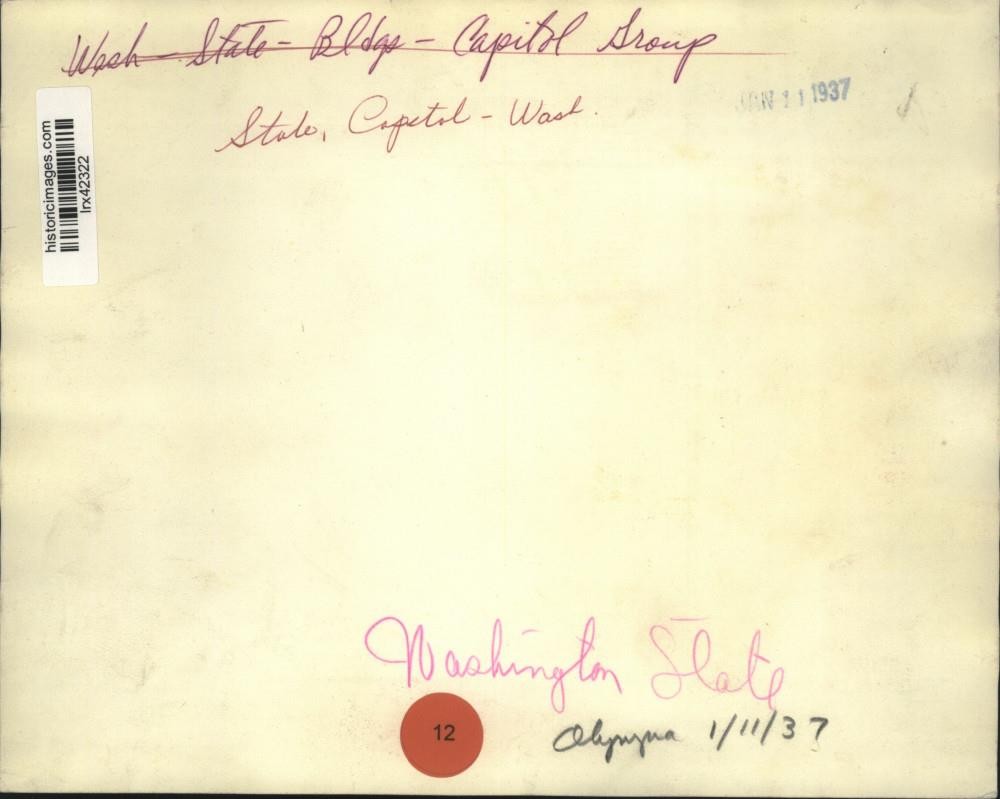 Wash - State - Bldgs - Capitol Group
State, Capitol - Wash.
JAN 11 1937
historicimages.com
lrx42322
Washington State
12
Olympia 1/11/37